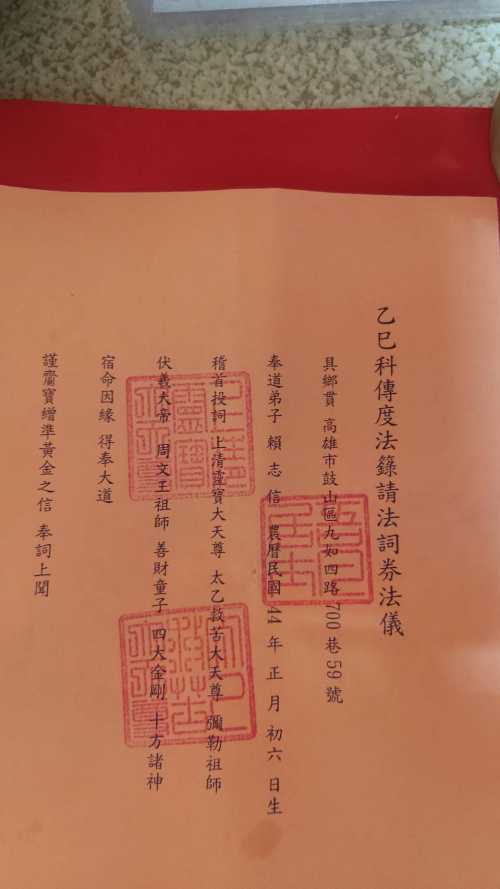 乙巳科傳度法籙請法詞券法儀
具鄉貫 高雄市鼓山區九如四路700巷59號
奉道弟子 賴志信 農曆民國44年正月初六日生
稽首投詞 上清靈寶大天尊 太乙救苦大天尊 彌勒祖師
伏羲大帝 周文王祖師 善財童子 四大金剛 十方諸神
宿命因緣 得奉大道
謹齎寶繒準黃金之信 奉詞上聞